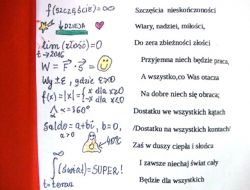 f(szczęście)=∞
↓DZIEJA
lim(złość)=0
t→2016
W = F · S = 😊
Wy±ε, gdzie ε>0
f(x)=|x|={x dla x≥0
-x dla x<0
∧ α=360°
α
saldo=a+bi, b=0,
a>0
40°C
∫(świat)=SUPER!
t=teraz
Szczęścia nieskończoności
Wiary, nadziei, miłości,
Do zera zbieżności złości
Przyjemna niech będzie praca,
A wszystko,co Was otacza
Na dobre niech się obraca;
Dostatku we wszystkich kątach
/Dostatku na wszystkich kontach/
Zaś w duszy ciepła i słońca
I zawsze niechaj świat cały
Będzie dla wszystkich